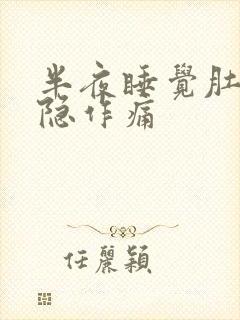 半夜睡覺肚
隐作痛
任麗穎